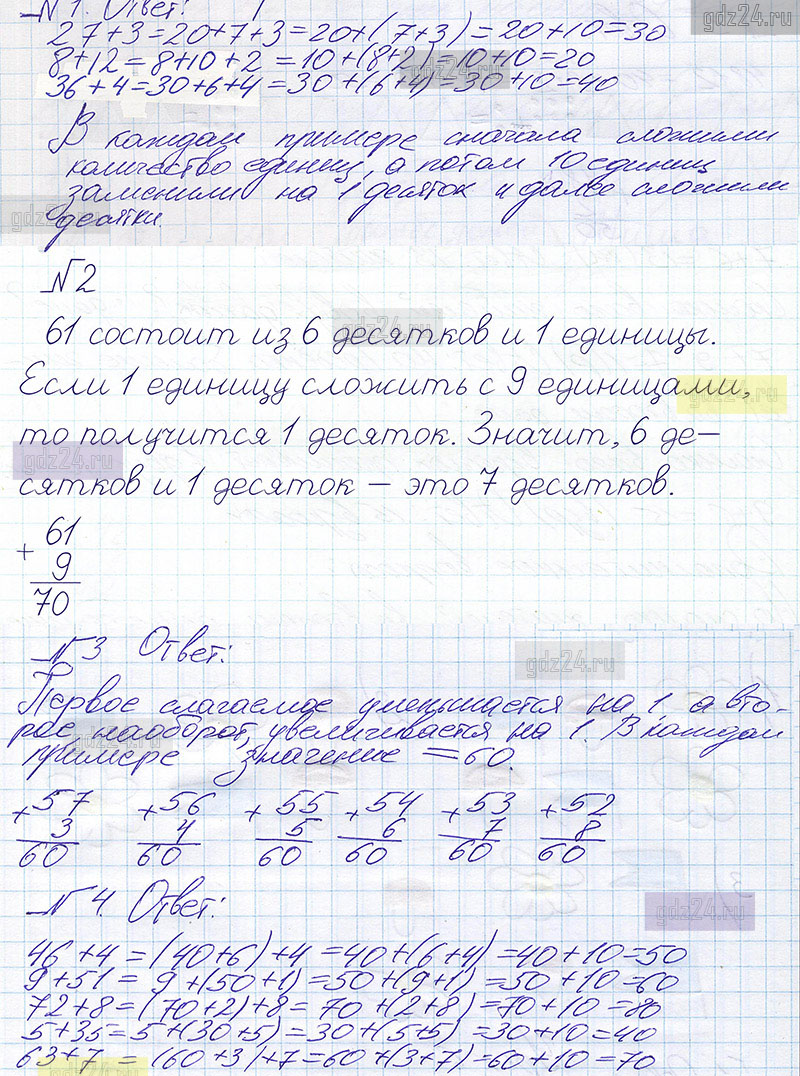 №1. Ответ:
gdz24.ru
27+3=20+7+3=20+(7+3)=20+10=30
8+12=8+10+2=10+(8+2)=10+10=20
gdz24.ru
36+4=30+6+4=30+(6+4)=30+10=40
В каждом примере сначала сложили
количество единиц, а потом 10 единиц
заменили на 1 десяток и далее сложили
gdz24.ru
десятки.
№2
61 состоит из 6 десятков и 1 единицы.
gdz24.ru
Если 1 единицу сложить с 9 единицами,
gdz24.ru
то получится 1 десяток. Значит, 6 де–
gdz24.ru
сятков и 1 десяток – это 7 десятков.
+ 61
9
70
№3 Ответ:
gdz24.ru
Первое слагаемое уменьшается на 1, а вто-
рое, наоборот, увеличивается на 1. В каждом
gdz24.ru
примере значение = 60.
+57 +56 +55 +54 +53 +52
3 4 5 6 7 8
60 60 60 60 60 60
№4. Ответ:
gdz24.ru
46+4=(40+6)+4=40+(6+4)=40+10=50
9+51=9+(50+1)=50+(9+1)=50+10=60
72+8=(70+2)+8=70+(2+8)=70+10=80
5+35=5+(30+5)=30+(5+5)=30+10=40
63+7=(60+3)+7=60+(3+7)=60+10=70
gdz24.ru